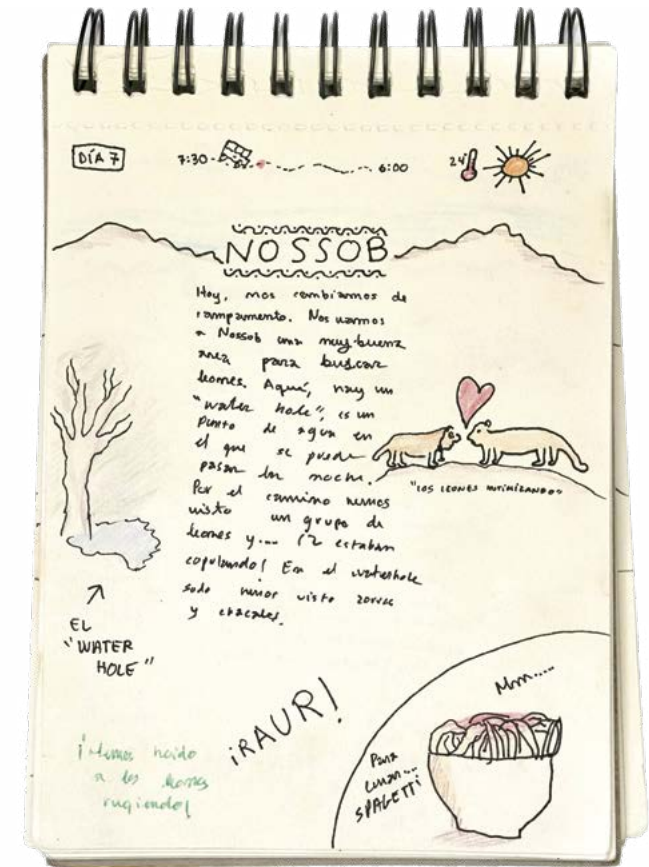 DÍA 7
7:30
6:00
24°
NOSSOB
Hoy, nos cambiamos de
campamento. Nos vamos
a Nossob una muy buena
area para buscar
leones. Aquí, hay un
"water hole", es un
punto de agua en
el que se puede
pasar la noche.
Por el camino hemos
visto un grupo de
leones y... ¡2 estaban
copulando! En el waterhole
solo hemos visto zorros
y chacales.
"LOS LEONES INTIMIZANDO"
EL
"WATER
HOLE"
¡RAUR!
¡Hemos hoido
a los leones
rugiendo!
Mmm.....
Para
cenar...
SPAGETTI